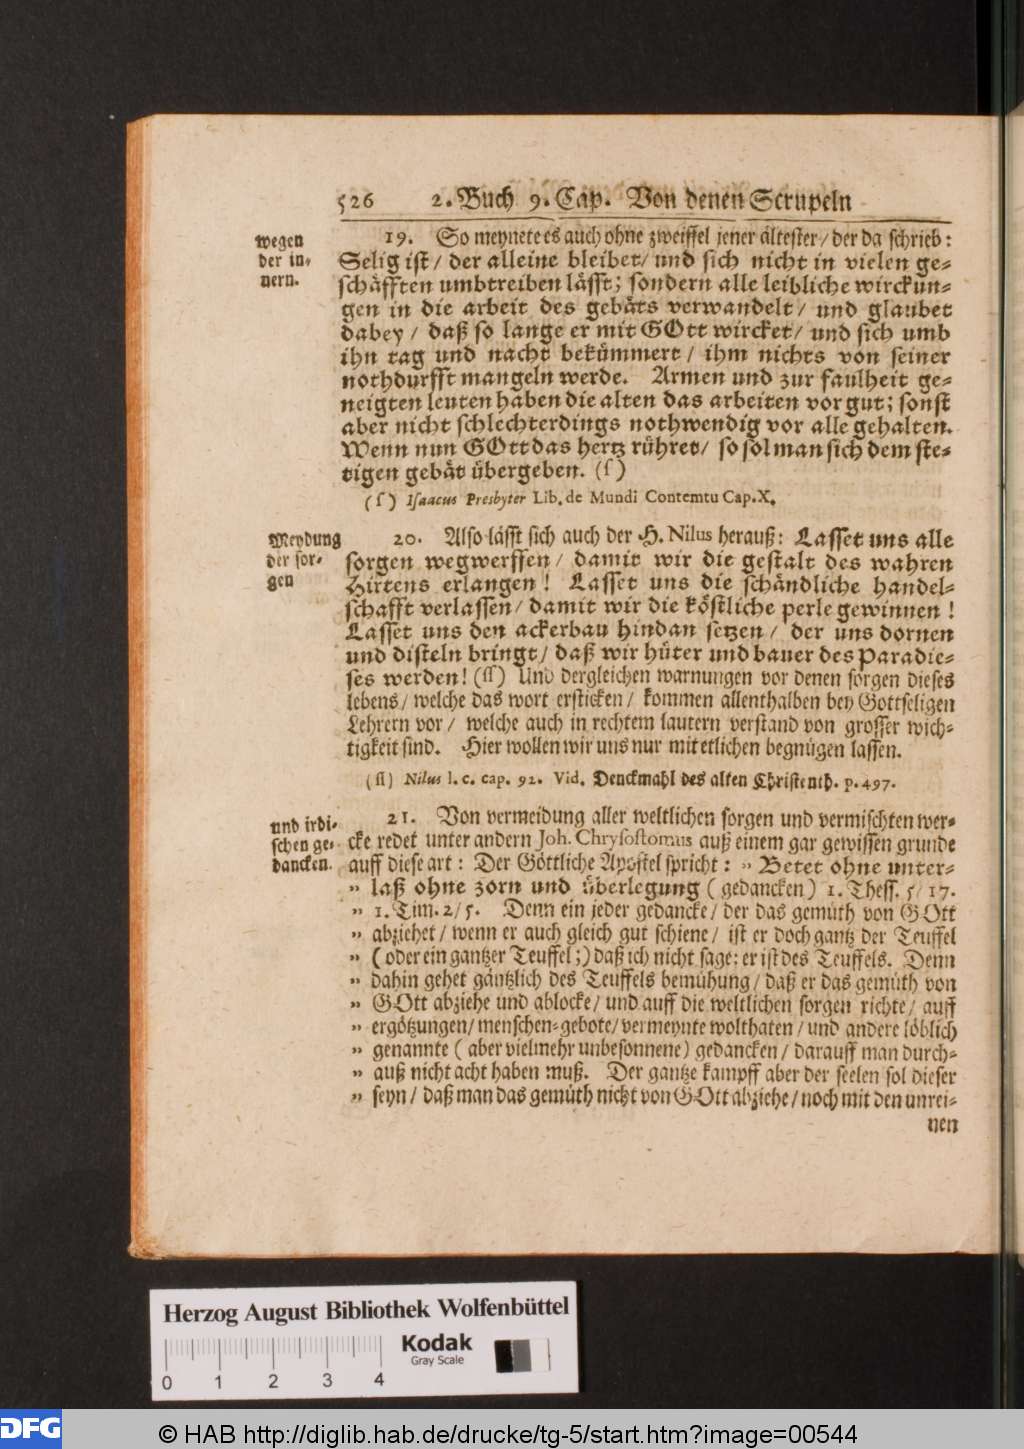 526 2. Buch 9. Cap. Von denen Scrupeln
wegen
der in-
nern.
19. So meynete es auch ohne zweiffel jener ältester / der da schrieb:
Selig ist / der alleine bleibet / und sich nicht in vielen ge-
schäfften umbtreiben lässt; sondern alle leibliche wirckun-
gen in die arbeit des gebäts verwandelt / und glaubet
dabey / daß so lange er mit GOtt wircket / und sich umb
ihn tag und nacht bekümmert / ihm nichts von seiner
nothdurfft mangeln werde. Armen und zur faulheit ge-
neigten leuten haben die alten das arbeiten vor gut; sonst
aber nicht schlechterdings nothwendig vor alle gehalten.
Wenn nun GOtt das hertz rühret / so sol man sich dem ste-
tigen gebät übergeben. (ſ)
(ſ) Isaacus Presbyter Lib. de Mundi Contemtu Cap. X.
Meydung
der sor-
gen
20. Also lässt sich auch der H. Nilus herauß: Lasset uns alle
sorgen wegwerffen / damit wir die gestalt des wahren
Hirtens erlangen! Lasset uns die schändliche handel-
schafft verlassen / damit wir die köstliche perle gewinnen!
Lasset uns den ackerbau hindan setzen / der uns dornen
und disteln bringt / daß wir hüter und bauer des Paradie-
ses werden! (ſſ) Und dergleichen warnungen vor denen sorgen dieses
lebens / welche das wort ersticken / kommen allenthalben bey Gottseligen
Lehrern vor / welche auch in rechtem lautern verstand von grosser wich-
tigkeit sind. Hier wollen wir uns nur mit etlichen begnügen lassen.
(ſſ) Nilus l. c. cap. 92. Vid. Denckmahl des alten Christenth. p. 497.
und irdi-
schen ge-
dancken.
21. Von vermeidung aller weltlichen sorgen und vermischten wer-
cke redet unter andern Joh. Chrysostomus auß einem gar gewissen grunde
auff diese art: Der Göttliche Apostel spricht: „ Betet ohne unter-
„ laß ohne zorn und überlegung (gedancken) 1. Thess. 5/17.
„ 1. Tim. 2/5. Denn ein jeder gedancke / der das gemüth von GOtt
„ abziehet / wenn er auch gleich gut schiene / ist er doch gantz der Teuffel
„ (oder ein gantzer Teuffel;) daß ich nicht sage: er ist des Teuffels. Denn
„ dahin gehet gäntzlich des Teuffels bemühung / daß er das gemüth von
„ GOtt abziehe und ablocke / und auff die weltlichen sorgen richte / auff
„ ergötzungen / menschen-gebote / vermeynte wolthaten / und andere löblich
„ genannte (aber vielmehr unbesonnene) gedancken / darauff man durch-
„ auß nicht acht haben muß. Der gantze kampff aber der seelen sol dieser
„ seyn / daß man das gemüth nicht von GOtt abziehe / noch mit den unrei-
nen
Herzog August Bibliothek Wolfenbüttel
Kodak
Gray Scale
0 1 2 3 4
DFG © HAB http://diglib.hab.de/drucke/tg-5/start.htm?image=00544